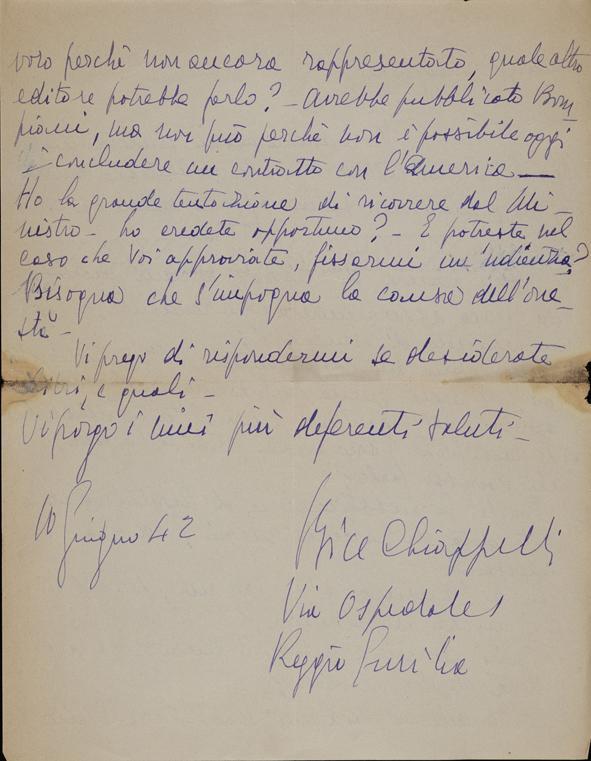 voro perchè non ancora rappresentato, quale altro
editore potrebbe farlo? - avrebbe pubblicato Bom
piani, ma non può perchè non è possibile oggi
concludere un contratto con l'America -
Ho la grande tentazione di ricorrere dal Mi-
nistro - Lo credete opportuno? - E potreste nel
caso che Voi approviate, fissarmi un'udienza?
Bisogna che s'impogna la causa dell'one-
stà -
Vi prego di rispondermi se desiderate
libri, e quali -
Vi porgo i miei più deferenti saluti -
10 Giugno 42
Bice Chiappelli
Via Ospedale 1
Reggio Emilia